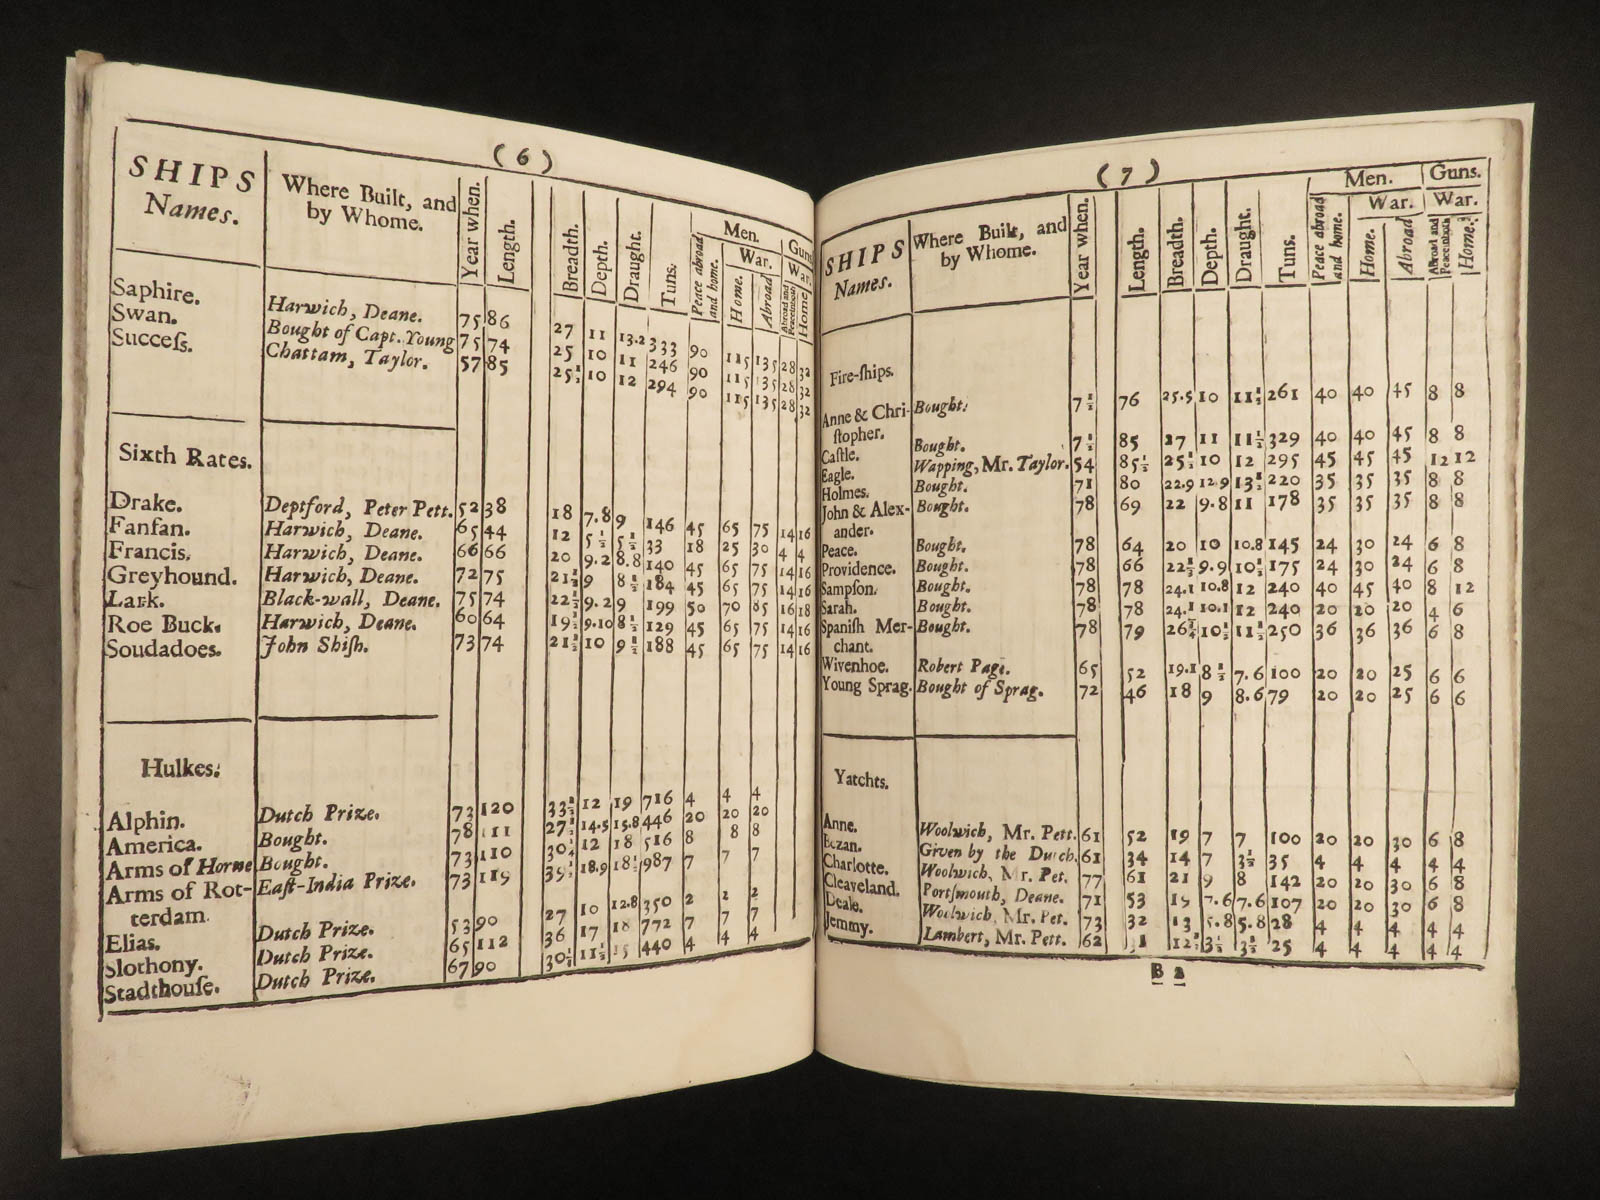 ( 6 )
SHIPS Names. Where Built, and by Whome. Year when. Length. Breadth. Depth. Draught. Tuns. Men. Peace abroad and home. War. Home. Abroad Guns War. Abroad and Peaceinboth Home
Saphire. Harwich, Deane. 75 86 27 11 13.2 333 90 115 135 28 32
Swan. Bought of Capt. Young 75 74 25 10 11 246 90 115 135 28 32
Succeſs. Chattam, Taylor. 57 85 25½ 10 12 294 90 115 135 28 32
Sixth Rates.
Drake. Deptford, Peter Pett. 52 38 18 7.8 9 146 45 65 75 14 16
Fanfan. Harwich, Deane. 65 44 12 5½ 5½ 33 18 25 30 4 4
Francis. Harwich, Deane. 66 66 20 9.2 8.8 140 45 65 75 14 16
Greyhound. Harwich, Deane. 72 75 21½ 9 8½ 184 45 65 75 14 16
Lark. Black-wall, Deane. 75 74 22½ 9.2 9 199 50 70 85 16 18
Roe Buck. Harwich, Deane. 60 64 19½ 9.10 8½ 129 45 65 75 14 16
Soudadoes. John Shiſh. 73 74 21½ 10 9½ 188 45 65 75 14 16
Hulkes.
Alphin. Dutch Prize. 73 120 33½ 12 19 716 4 4 4
America. Bought. 78 111 27½ 14.5 15.8 446 20 20 20
Arms of Horne Bought. 73 110 30¼ 12 18 516 8 8 8
Arms of Rot- Eaſt-India Prize. 73 119 39½ 18.9 18½ 987 7 7 7
terdam.
Elias. Dutch Prize. 53 90 27 10 12.8 350 2 2 2
Slothony. Dutch Prize. 65 112 36 17 18 772 7 7 7
Stadthouſe. Dutch Prize. 67 90 30½ 11½ 15 440 4 4 4
( 7 )
SHIPS Names. Where Built, and by Whome. Year when. Length. Breadth. Depth. Draught. Tuns. Men. Peace abroad and home. War. Home. Abroad Guns. War. Abroad and Peaceinboth Home.
Fire-ſhips.
Anne & Chri- Bought. 7½ 76 25.5 10 11½ 261 40 40 45 8 8
ſtopher.
Caſtle. Bought. 7½ 85 27 11 11½ 329 40 40 45 8 8
Eagle. Wapping, Mr. Taylor. 54 85½ 25½ 10 12 295 45 45 45 12 12
Holmes. Bought. 71 80 22.9 12.9 13½ 220 35 35 35 8 8
John & Alex- Bought. 78 69 22 9.8 11 178 35 35 35 8 8
ander.
Peace. Bought. 78 64 20 10 10.8 145 24 30 24 6 8
Providence. Bought. 78 66 22½ 9.9 10½ 175 24 30 24 6 8
Sampſon. Bought. 78 78 24.1 10.8 12 240 40 45 40 8 12
Sarah. Bought. 78 78 24.1 10.1 12 240 20 20 20 4 6
Spaniſh Mer- Bought. 78 79 26¼ 10½ 11½ 250 36 36 36 6 8
chant.
Wivenhoe. Robert Page. 65 52 19.1 8½ 7.6 100 20 20 25 6 6
Young Sprag. Bought of Sprag. 72 46 18 9 8.6 79 20 20 25 6 6
Yatchts.
Anne. Woolwich, Mr. Pett. 61 52 19 7 7 100 20 20 30 6 8
Bezan. Given by the Dutch. 61 34 14 7 3½ 35 4 4 4 4 4
Charlotte. Woolwich, Mr. Pet. 77 61 21 9 8 142 20 20 30 6 8
Cleaveland. Portſmouth, Deane. 71 53 19 7.6 7.6 107 20 20 30 6 8
Deale. Woolwich, Mr. Pet. 73 32 13 5.8 5.8 28 4 4 4 4 4
Jemmy. Lambert, Mr. Pett. 62 12½ 3½ 3½ 25 4 4 4 4 4
B 2